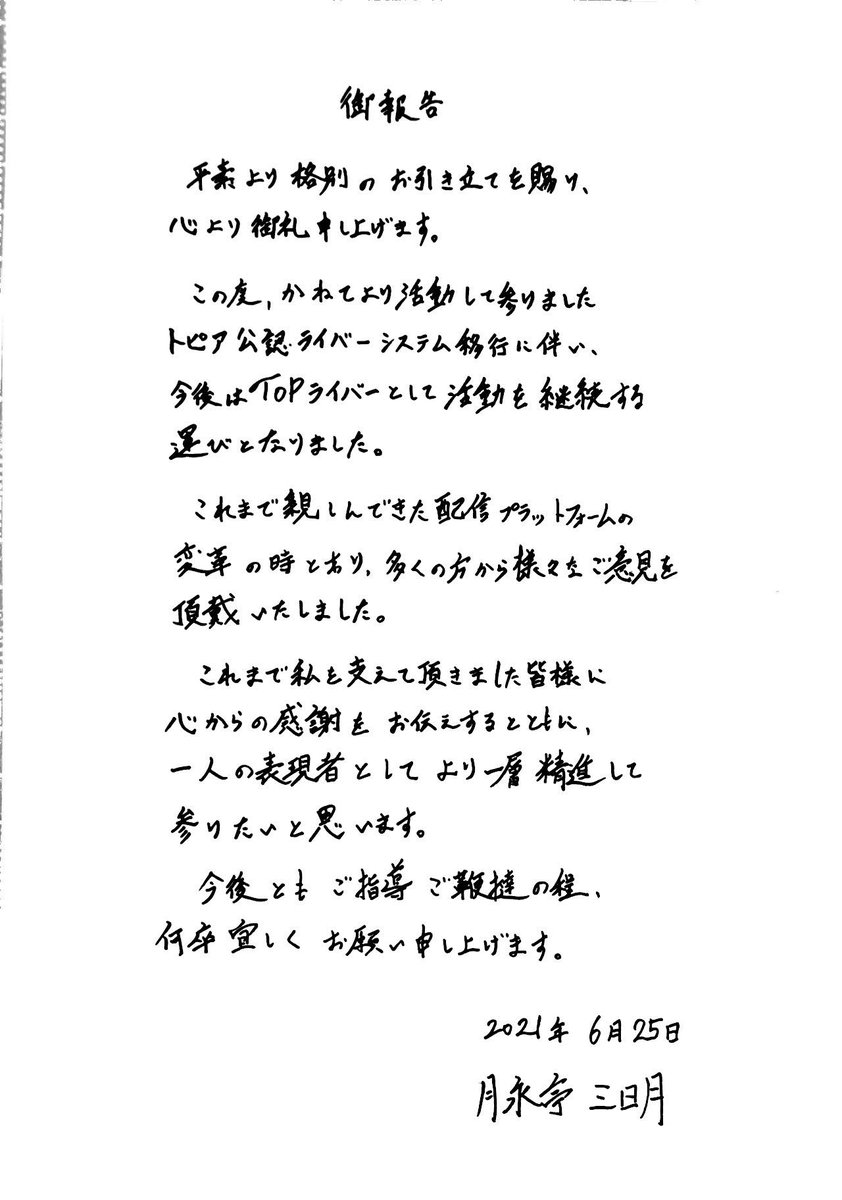 御報告
平素より格別のお引き立てを賜り、
心より御礼申し上げます。
この度、かねてより活動して参りました
トピア公認ライバーシステム移行に伴い、
今後はTOPライバーとして活動を継続する
運びとなりました。
これまで親しんできた配信プラットフォームの
変革の時とあり、多くの方から様々なご意見を
頂戴いたしました。
これまで私を支えて頂きました皆様に
心からの感謝をお伝えするとともに、
一人の表現者としてより一層精進して
参りたいと思います。
今後ともご指導ご鞭撻の程、
何卒宜しくお願い申し上げます。
2021年 6月25日
月永亭 三日月